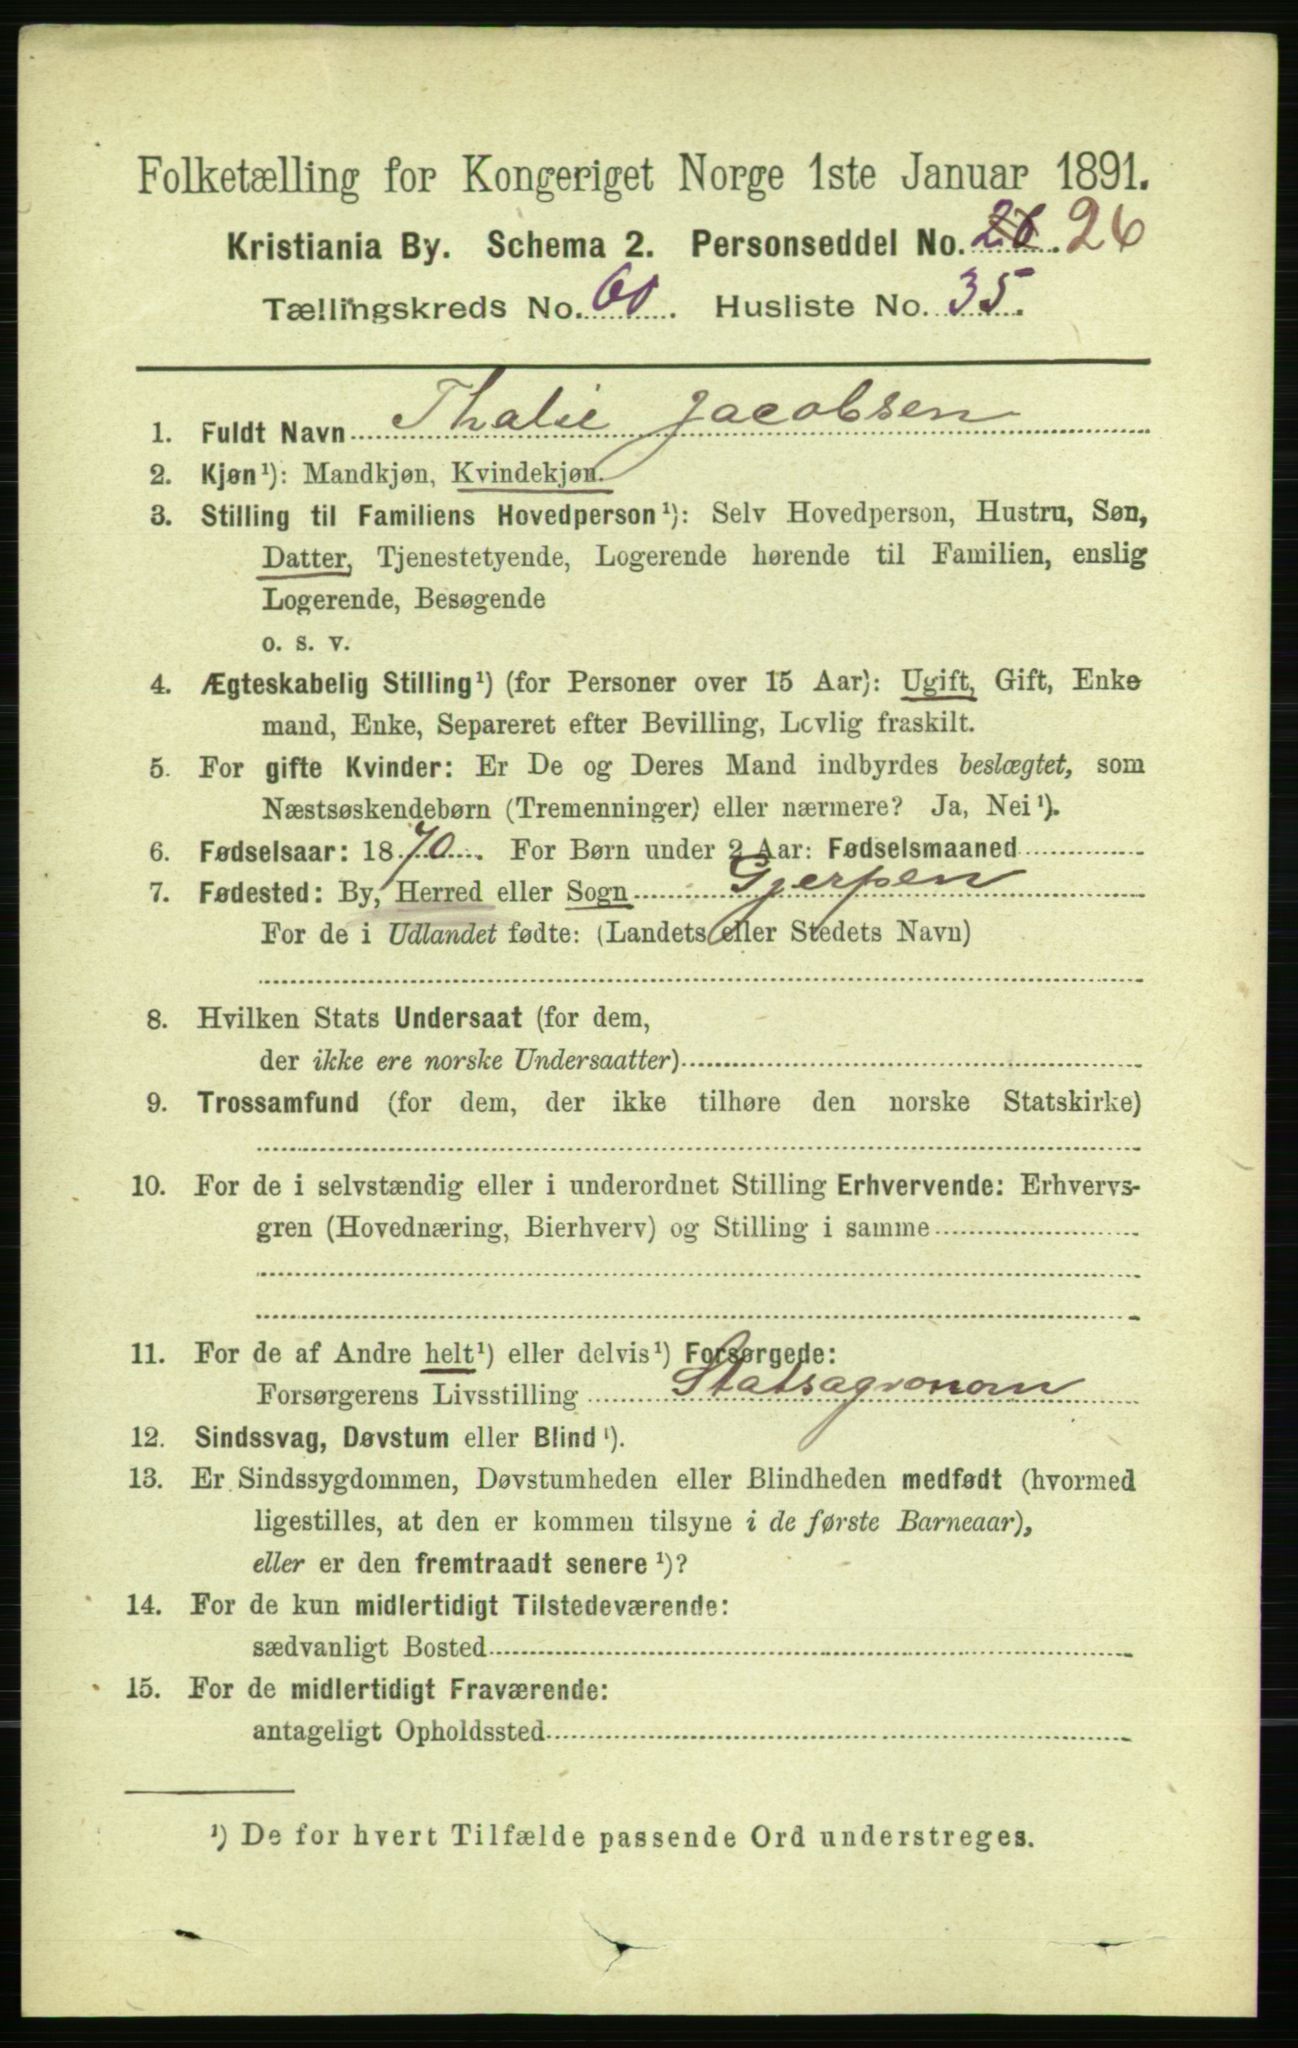 Folketælling for Kongeriget Norge 1ste Januar 1891.
Kristiania By. Schema 2. Personseddel No. 26. 26
Tællingskreds No. 60. Husliste No. 35.
1. Fuldt Navn Thalie Jacobsen
2. Kjøn¹): Mandkjøn, Kvindekjøn.
3. Stilling til Familiens Hovedperson¹): Selv Hovedperson, Hustru, Søn,
Datter, Tjenestetyende, Logerende hørende til Familien, enslig
Logerende, Besøgende
o. s. v.
4. Ægteskabelig Stilling¹) (for Personer over 15 Aar): Ugift, Gift, Enke
mand, Enke, Separeret efter Bevilling, Lovlig fraskilt.
5. For gifte Kvinder: Er De og Deres Mand indbyrdes beslægtet, som
Næstsøskendebørn (Tremenninger) eller nærmere? Ja, Nei¹).
6. Fødselsaar: 1870. For Børn under 2 Aar: Fødselsmaaned
7. Fødested: By, Herred eller Sogn Gjerpen
For de i Udlandet fødte: (Landets eller Stedets Navn)
8. Hvilken Stats Undersaat (for dem,
der ikke ere norske Undersaatter)
9. Trossamfund (for dem, der ikke tilhøre den norske Statskirke)
10. For de i selvstændig eller i underordnet Stilling Erhvervende: Erhvervs-
gren (Hovednæring, Bierhverv) og Stilling i samme
11. For de af Andre helt¹) eller delvis¹) Forsørgede:
Forsørgerens Livsstilling Statsagronom
12. Sindssvag, Døvstum eller Blind¹).
13. Er Sindssygdommen, Døvstumheden eller Blindheden medfødt (hvormed
ligestilles, at den er kommen tilsyne i de første Barneaar),
eller er den fremtraadt senere¹)?
14. For de kun midlertidigt Tilstedeværende:
sædvanligt Bosted
15. For de midlertidigt Fraværende:
antageligt Opholdssted
¹) De for hvert Tilfælde passende Ord understreges.